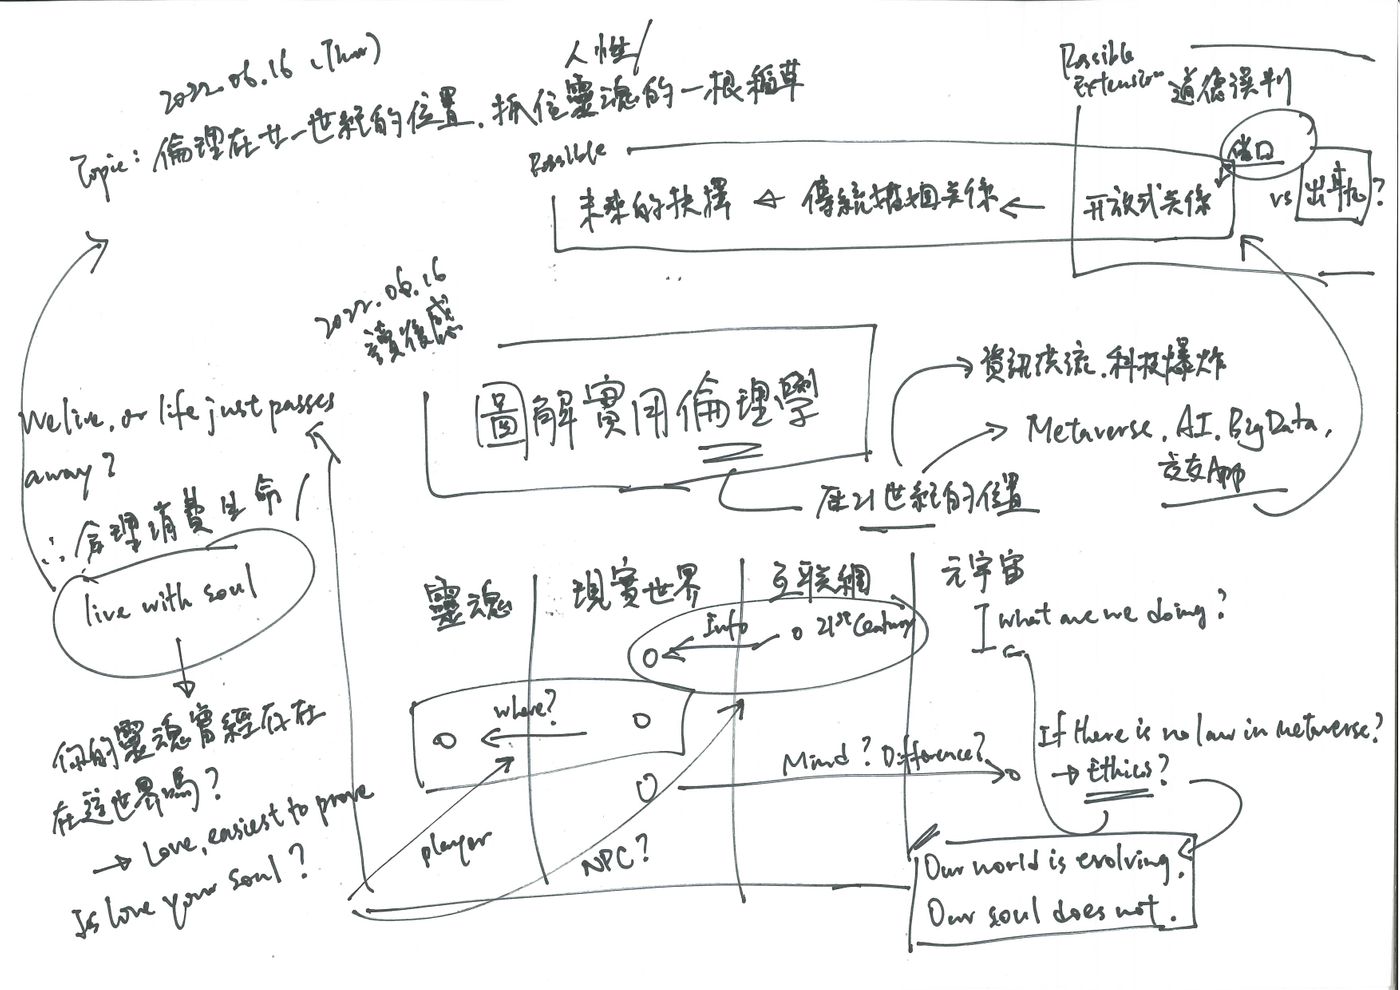 2022.06.16 (Thur)
人性/
Topic: 倫理在廿一世紀的位置．抓住靈魂的一根稻草
Possible
Extension
道德誤判
Possible
未來的抉擇
傳統婚姻关係
开放式关係
藉口
vs
出軌
?
2022.06.16
讀後感
圖解實用倫理學
在21世紀的位置
資訊洪流．科技爆炸
Metaverse. AI. Big Data,
交友App
We live, or life just passes
away?
∴ 合理消費生命
live with soul
你的靈魂曾經存在
在這世界嗎?
→ Love, easiest to prove
Is love your soul?
靈魂
現實世界
互联網
元宇宙
Info
21st Century
what are we doing?
where?
Mind? Difference?
player
NPC?
If there is no law in metaverse?
→ Ethics?
Our world is evolving.
Our soul does not.